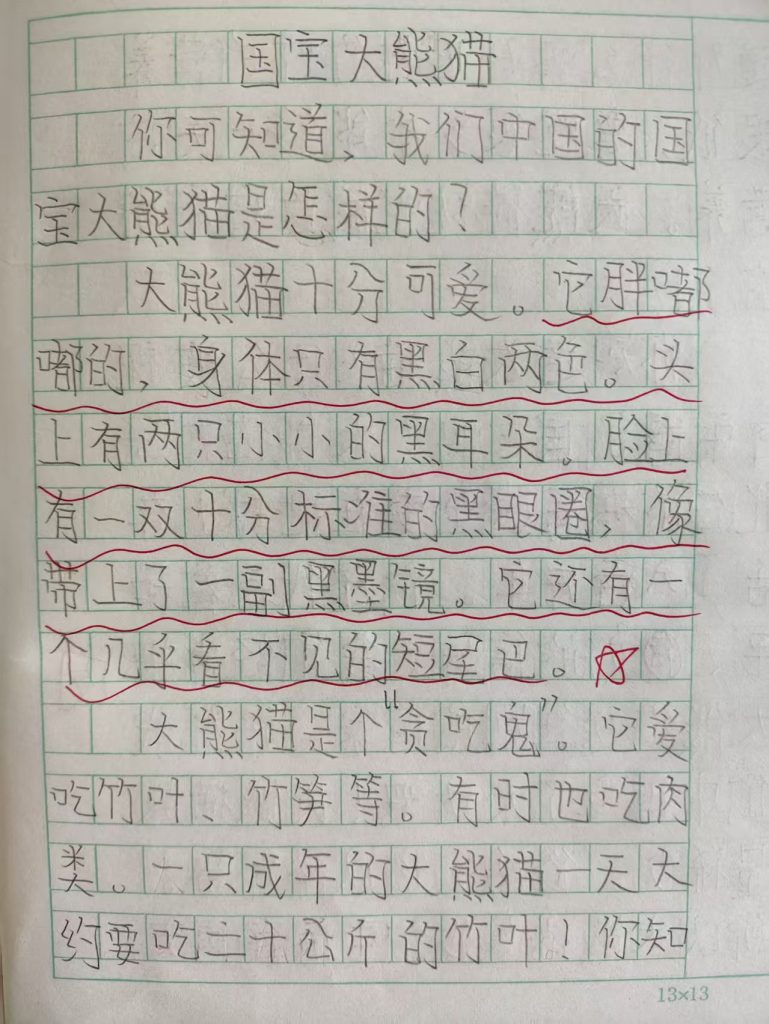 国宝大熊猫
你可知道、我们中国的国
宝大熊猫是怎样的？
大熊猫十分可爱。它胖嘟
嘟的，身体只有黑白两色。头
上有两只小小的黑耳朵。脸上
有一双十分标准的黑眼圈，像
带上了一副黑墨镜。它还有一
个几乎看不见的短尾巴。
大熊猫是个“贪吃鬼”。它爱
吃竹叶、竹笋等。有时也吃肉
类。一只成年的大熊猫一天大
约要吃二十公斤的竹叶！你知
13×13